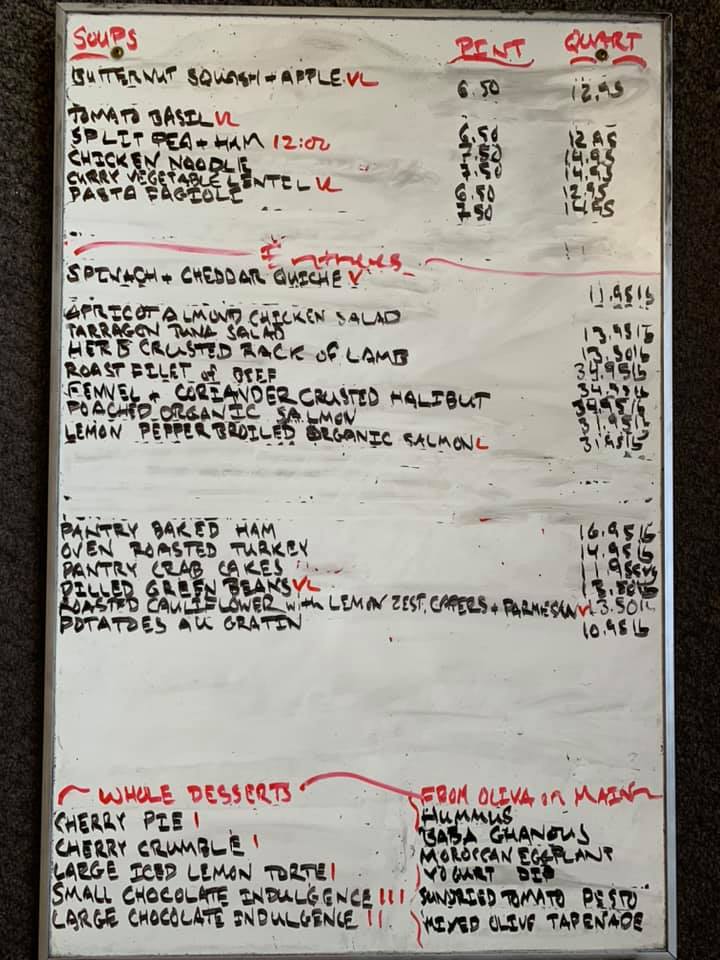 SOUPS PINT QUART
BUTTERNUT SQUASH + APPLE VL 6.50 12.95
TOMATO BASIL VL 6.50 12.95
SPLIT PEA + HAM 12:00 7.50 14.95
CHICKEN NOODLE 7.50 14.95
CURRY VEGETABLE LENTIL VL 6.50 12.95
PASTA FAGIOLI 7.50 14.95
Entrees
SPINACH + CHEDDAR QUICHE V 11.95 lb
APRICOT ALMOND CHICKEN SALAD 13.95 lb
TARRAGON TUNA SALAD 13.50 lb
HERB CRUSTED RACK OF LAMB 34.95 lb
ROAST FILET of BEEF 34.95 lb
FENNEL + CORIANDER CRUSTED HALIBUT 34.95 lb
POACHED ORGANIC SALMON 31.95 lb
LEMON PEPPER BROILED ORGANIC SALMON L 31.95 lb
PANTRY BAKED HAM 16.95 lb
OVEN ROASTED TURKEY 14.95 lb
PANTRY CRAB CAKES
DILLED GREEN BEANS VL
ROASTED CAULIFLOWER with LEMON ZEST, CAPERS + PARMESAN V 13.50 lb
POTATOES AU GRATIN 10.95 lb
WHOLE DESSERTS
CHERRY PIE I
CHERRY CRUMBLE I
LARGE ICED LEMON TORTE I
SMALL CHOCOLATE INDULGENCE III
LARGE CHOCOLATE INDULGENCE II
FROM OLIVA on MAIN
HUMMUS
BABA GHANOUS
MOROCCAN EGGPLANT
YOGURT DIP
SUNDRIED TOMATO PESTO
MIXED OLIVE TAPENADE